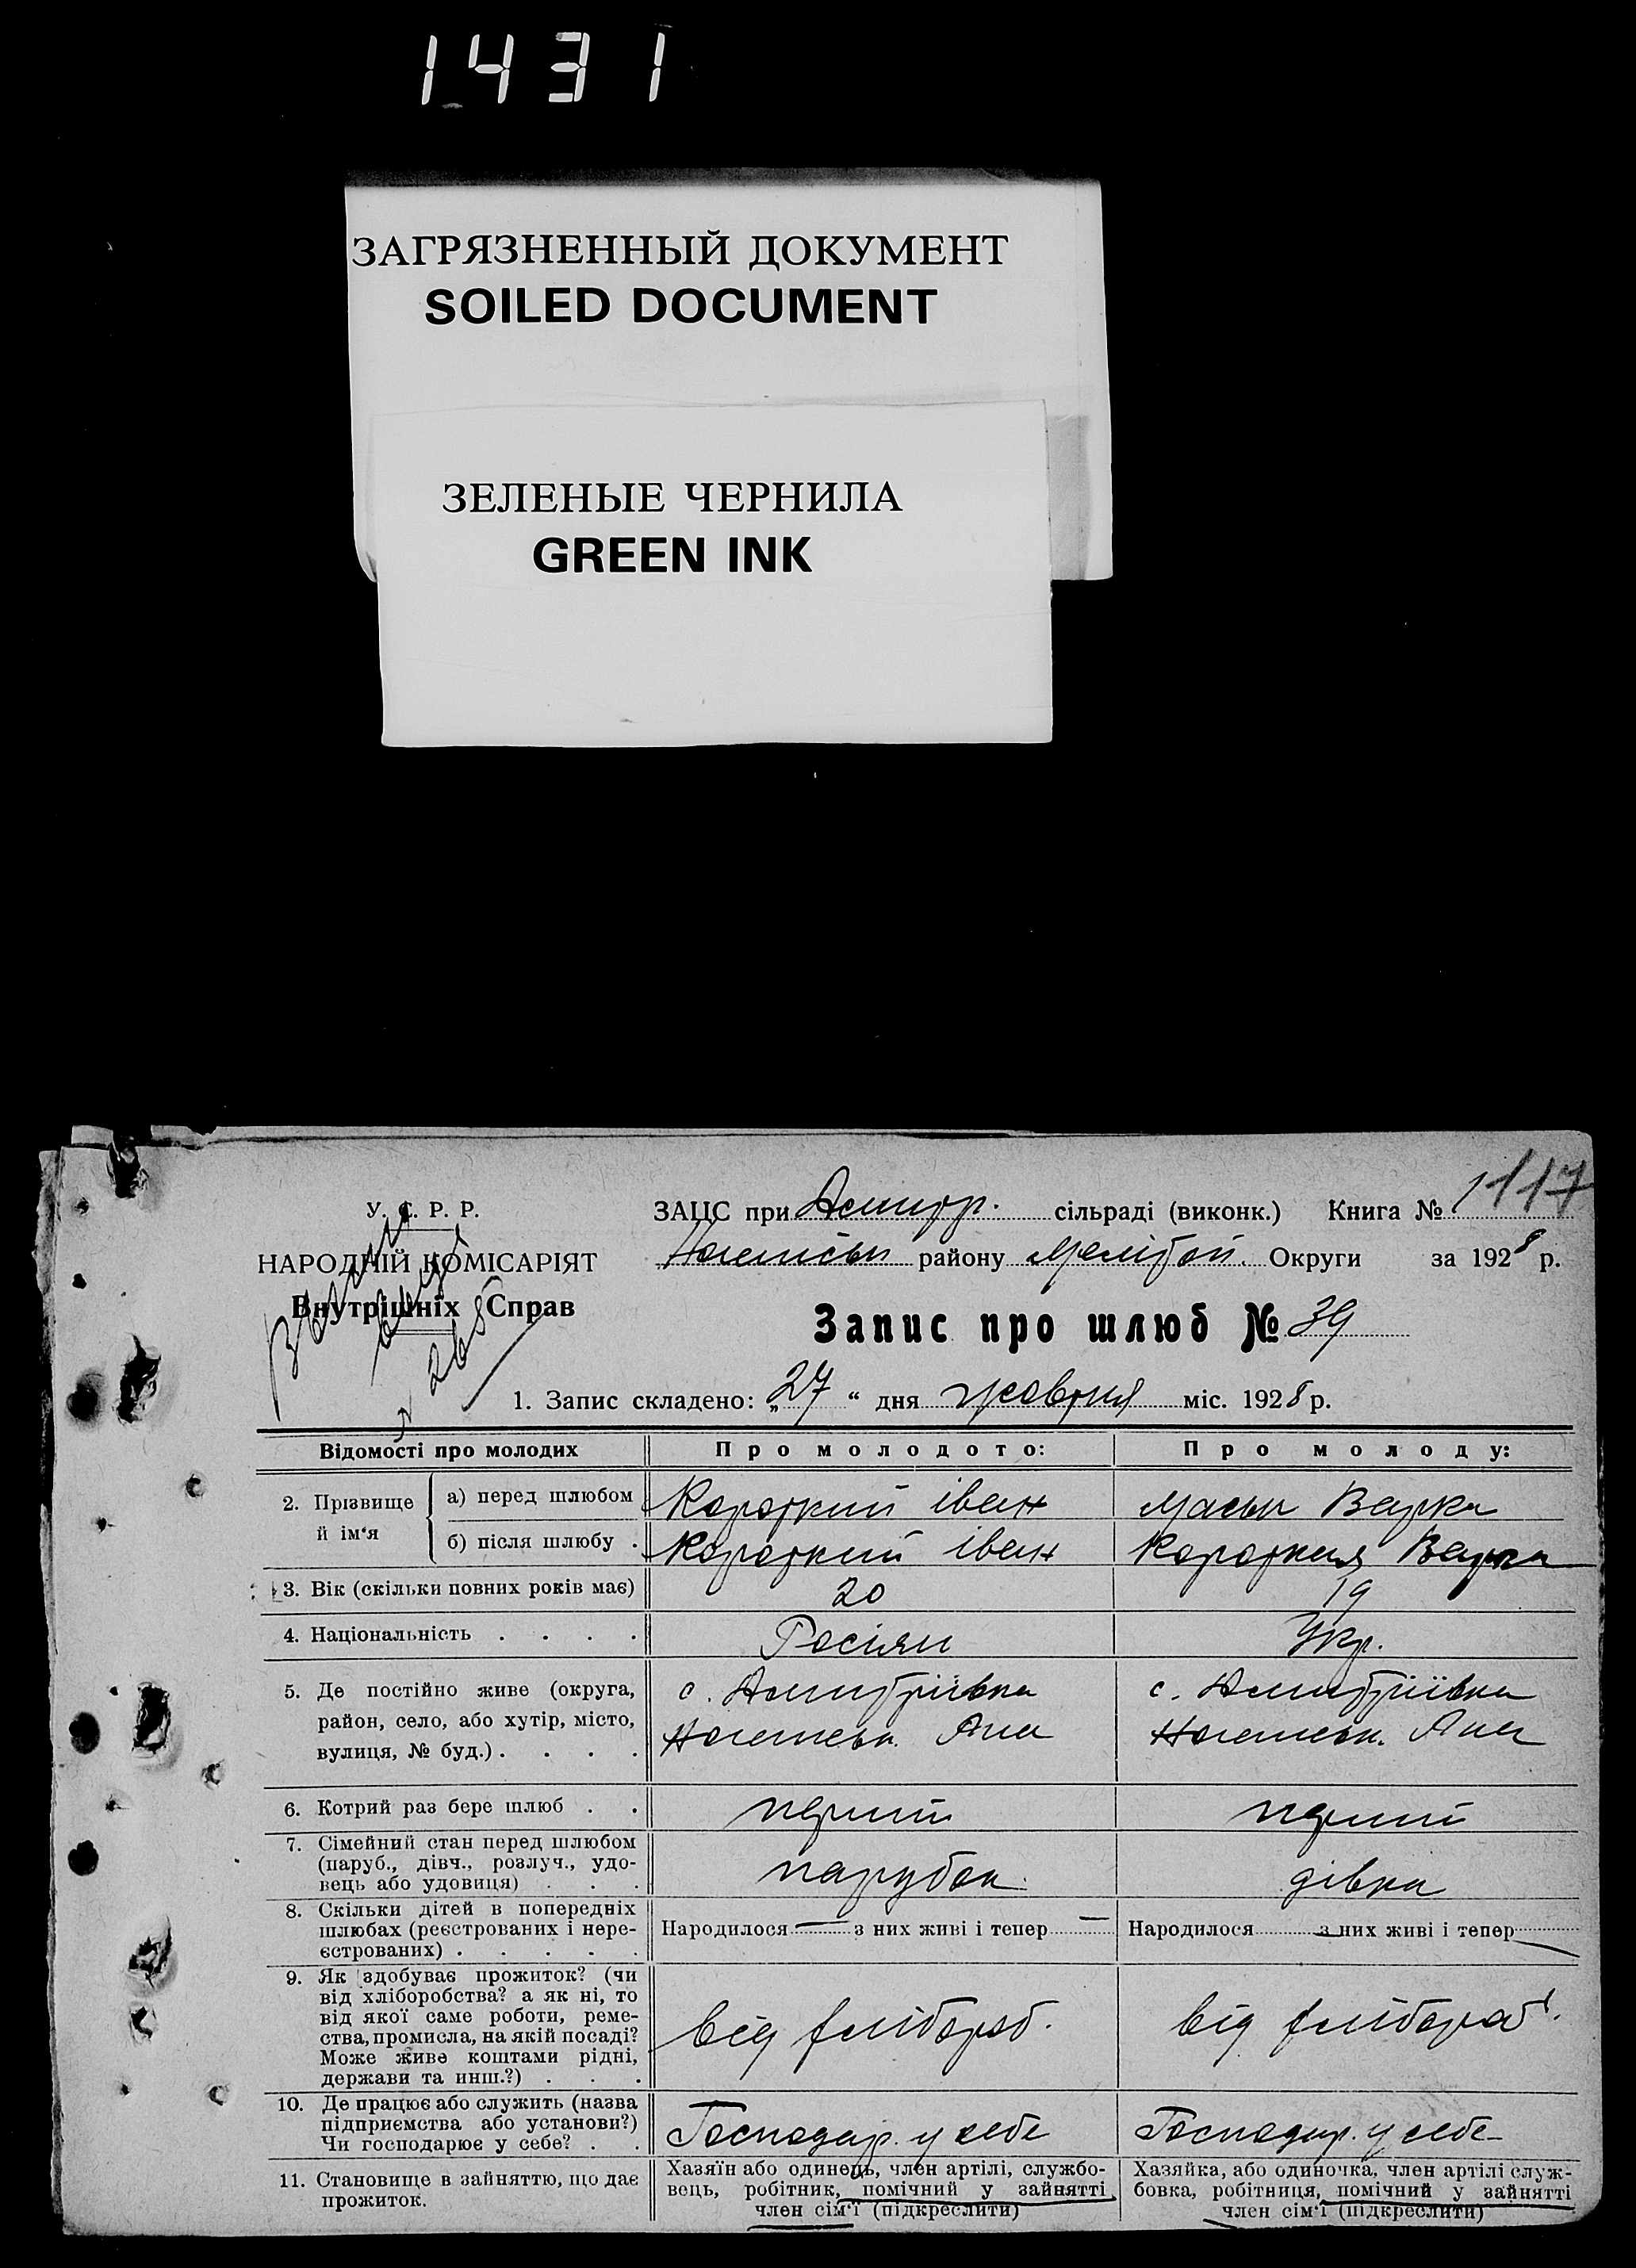 1431
ЗАГРЯЗНЕННЫЙ ДОКУМЕНТ
SOILED DOCUMENT
ЗЕЛЕНЫЕ ЧЕРНИЛА
GREEN INK
117
У. С. Р. Р.
НАРОДНІЙ КОМІСАРІЯТ
Внутрішніх Справ
ЗАЦС при сільраді (виконк.) Книга № 1
району Меліто́п. Округи за 1928 р.
Запис про шлюб № 39
1. Запис складено: „27“ дня жовтня міс. 1928 р.
Відомості про молодих Про молодого: Про молоду:
2. Прізвище й ім'я
а) перед шлюбом Короткий Іван Варка
б) після шлюбу . Короткий Іван Короткая Варка
3. Вік (скільки повних років має) 20 19
4. Національність . . . . Росіян Укр.
5. Де постійно живе (округа, район, село, або хутір, місто, вулиця, № буд.) . . . .
с. Дмитріївка с. Дмитріївка
6. Котрий раз бере шлюб . . перший перший
7. Сімейний стан перед шлюбом (паруб., дівч., розлуч., удовець або удовиця) . . . парубок дівка
8. Скільки дітей в попередніх шлюбах (реєстрованих і нереєстрованих) . . . . . Народилося — з них живі і тепер — Народилося з них живі і тепер —
9. Як здобуває прожиток? (чи від хліборобства? а як ні, то від якої саме роботи, ремества, промисла, на якій посаді? Може живе коштами рідні, держави та инш.?) . . . від хлібороб. від хлібороб.
10. Де працює або служить (назва підприємства або установи?) Чи господарює у себе? . . Господар. у себе Господар. у себе
11. Становище в зайняттю, що дає прожиток.
Хазяїн або одинець, член артілі, службовець, робітник, помічний у зайнятті член сім'ї (підкреслити)
Хазяйка, або одиночка, член артілі службовка, робітниця, помічний у зайнятті член сім'ї (підкреслити)